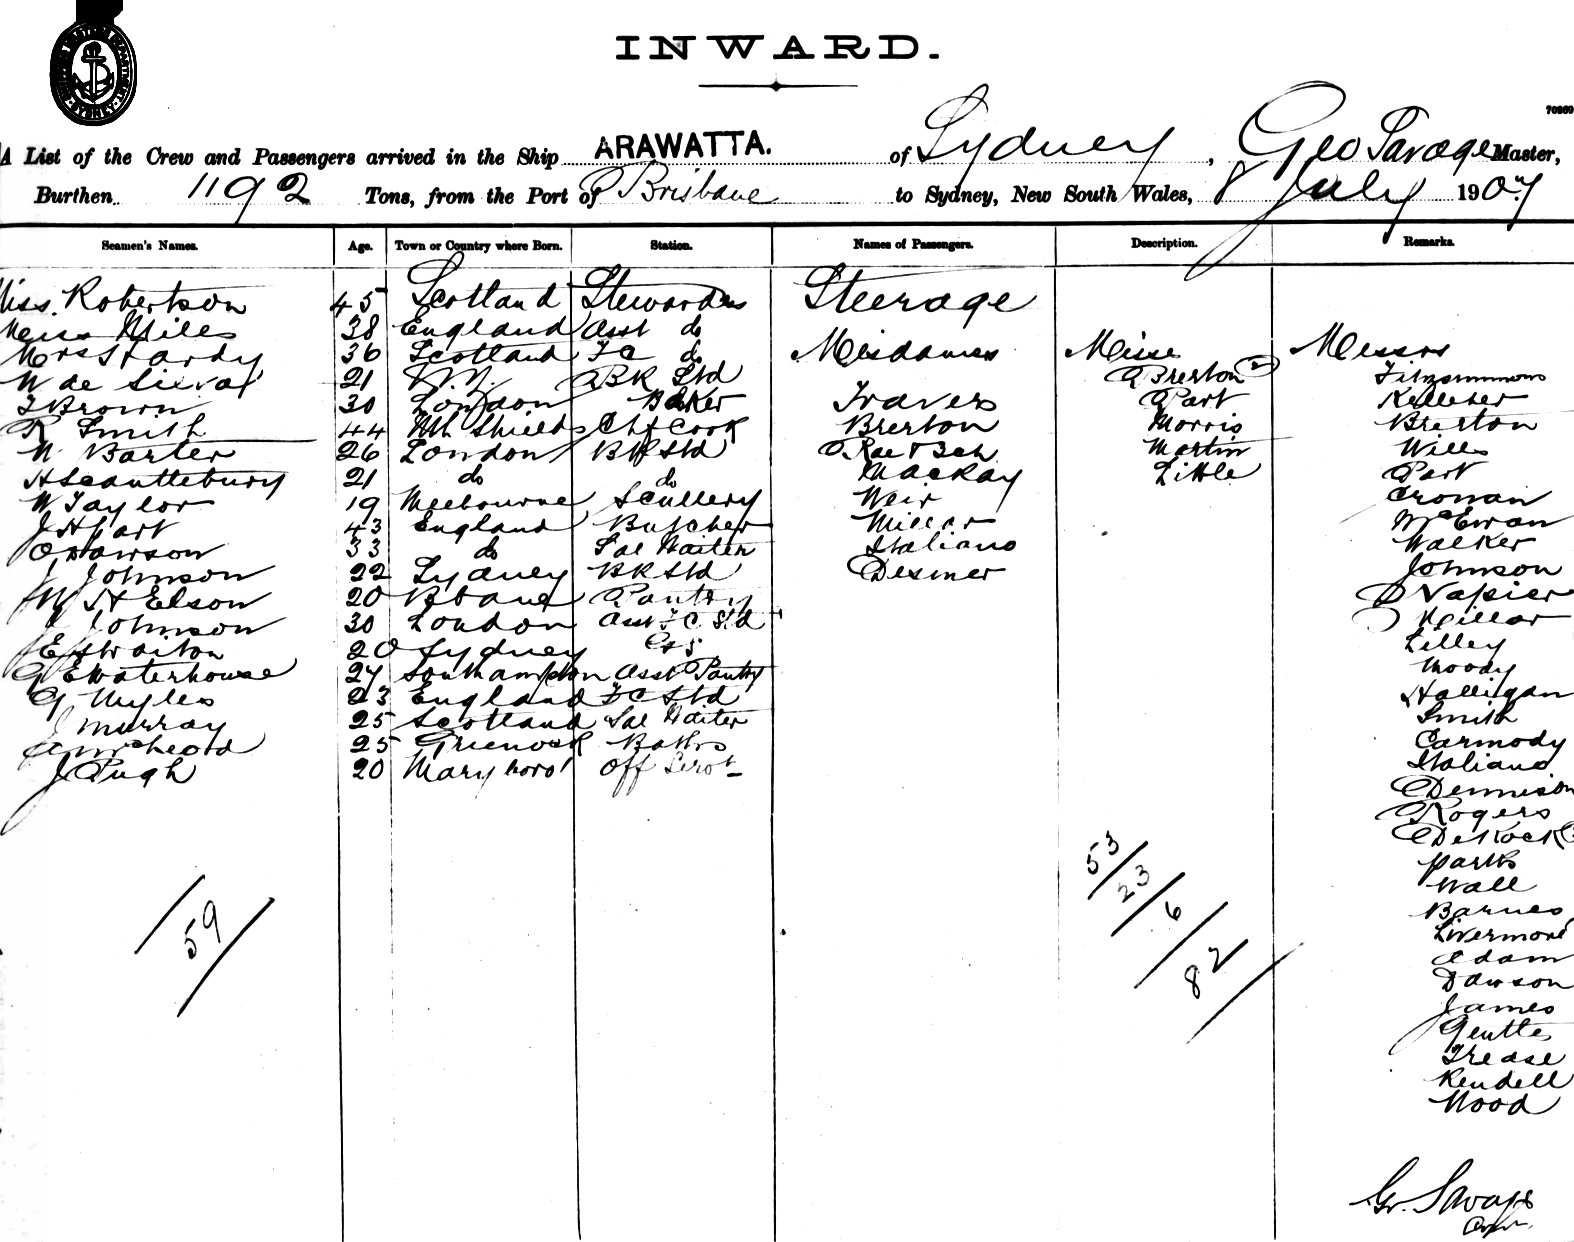 INWARD.
70269
A List of the Crew and Passengers arrived in the Ship ARAWATTA. of Sydney, Geo Savage Master,
Burthen 1192 Tons, from the Port of Brisbane to Sydney, New South Wales, 8 July 1907
Seamen's Names. Age. Town or Country where Born. Station. Names of Passengers. Description. Remarks.
Miss Robertson 45 Scotland Stewardess Steerage
Miss Miles 38 England Asst do
Mrs Hardy 36 Scotland FC do Mesdames Misse Messrs
W de Silva 21 BR Std Brerton 2 Fitzsimmons
T Brown 30 London Baker Travers Part Kelleher
R Smith 44 Nth Shields Chf Cook Brerton Morris Brerton
W Barter 26 London BR Std Rae & Bch Martin Wills
H Scantlebury 21 do do Mackay Little Part
W Taylor 19 Melbourne Scullery Weir Cronan
J Hart 43 England Butcher Millar McEwan
O Dawson 33 do Sal Waiter Italiano Walker
J Johnson 22 Sydney BR Std Desmer Johnson
W H Elson 20 Bbane Pantry Napier
J Johnson 30 London Asst FC Std Millar
E Straiton 20 Sydney Lilley
G E Waterhouse 24 Southampton Asst Pantry Moody
G Myles 23 England FC Std Halligan
J Murray 25 Scotland Sal Waiter Smith
A McLeod 25 Greenock Baths Carmody
J Pugh 20 Maryboro' Off Servt Italiano
Dennison
Rogers
DeKock
Parks
Wall
Barnes
Livermore
Adam
Dawson
James
Gentte
Trease
Rendell
Wood
59
53/23/6/82
Gr. Savage